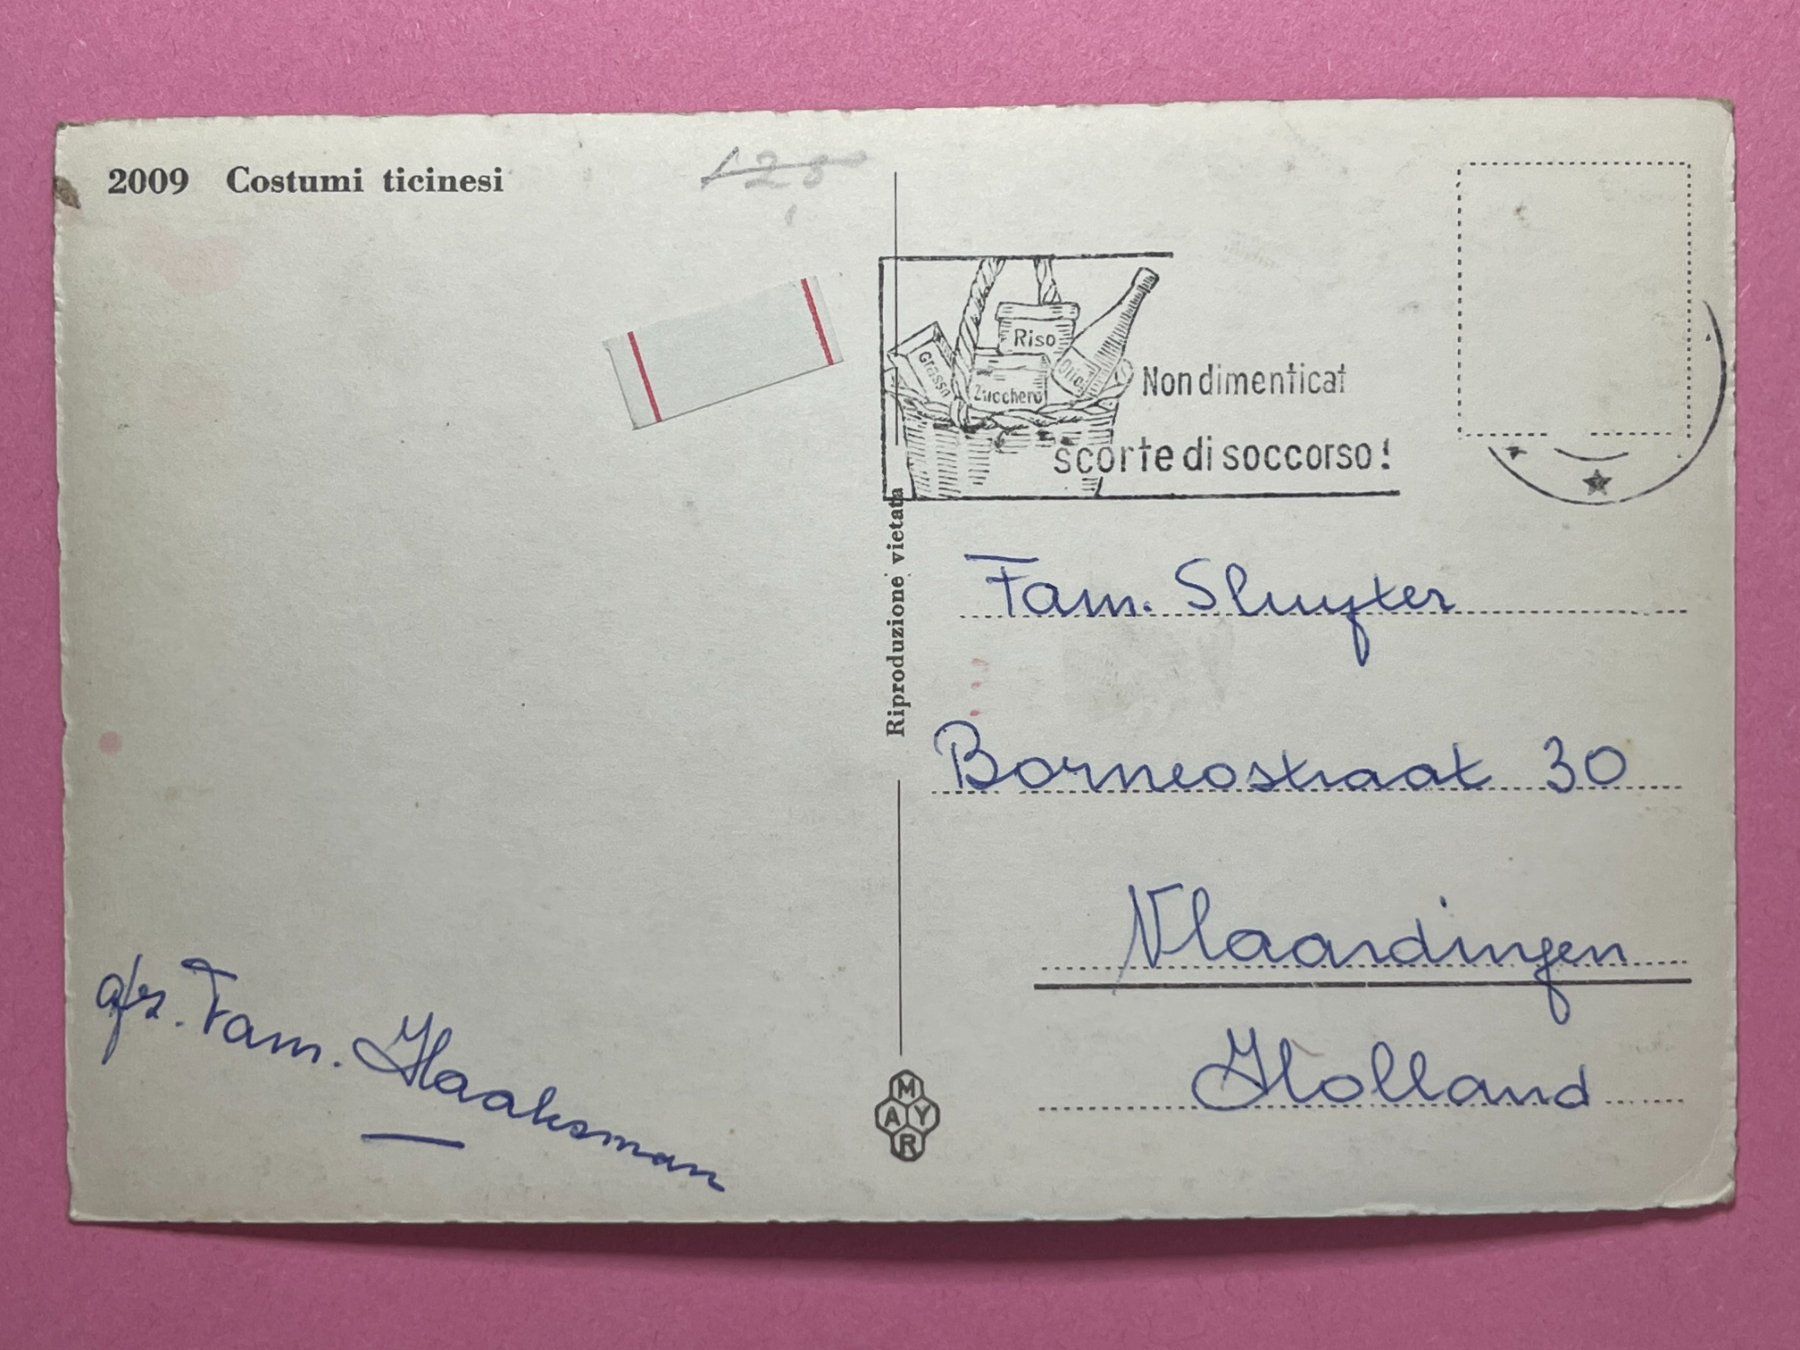 2009 Costumi ticinesi
Riso
Grasso
Zucchero
Olio
Non dimenticat
scorte di soccorso!
Riproduzione vietata
Fam. Sluyter
Borneostraat 30
Vlaardingen
Holland
afz. Fam. Haaksman
MAYR